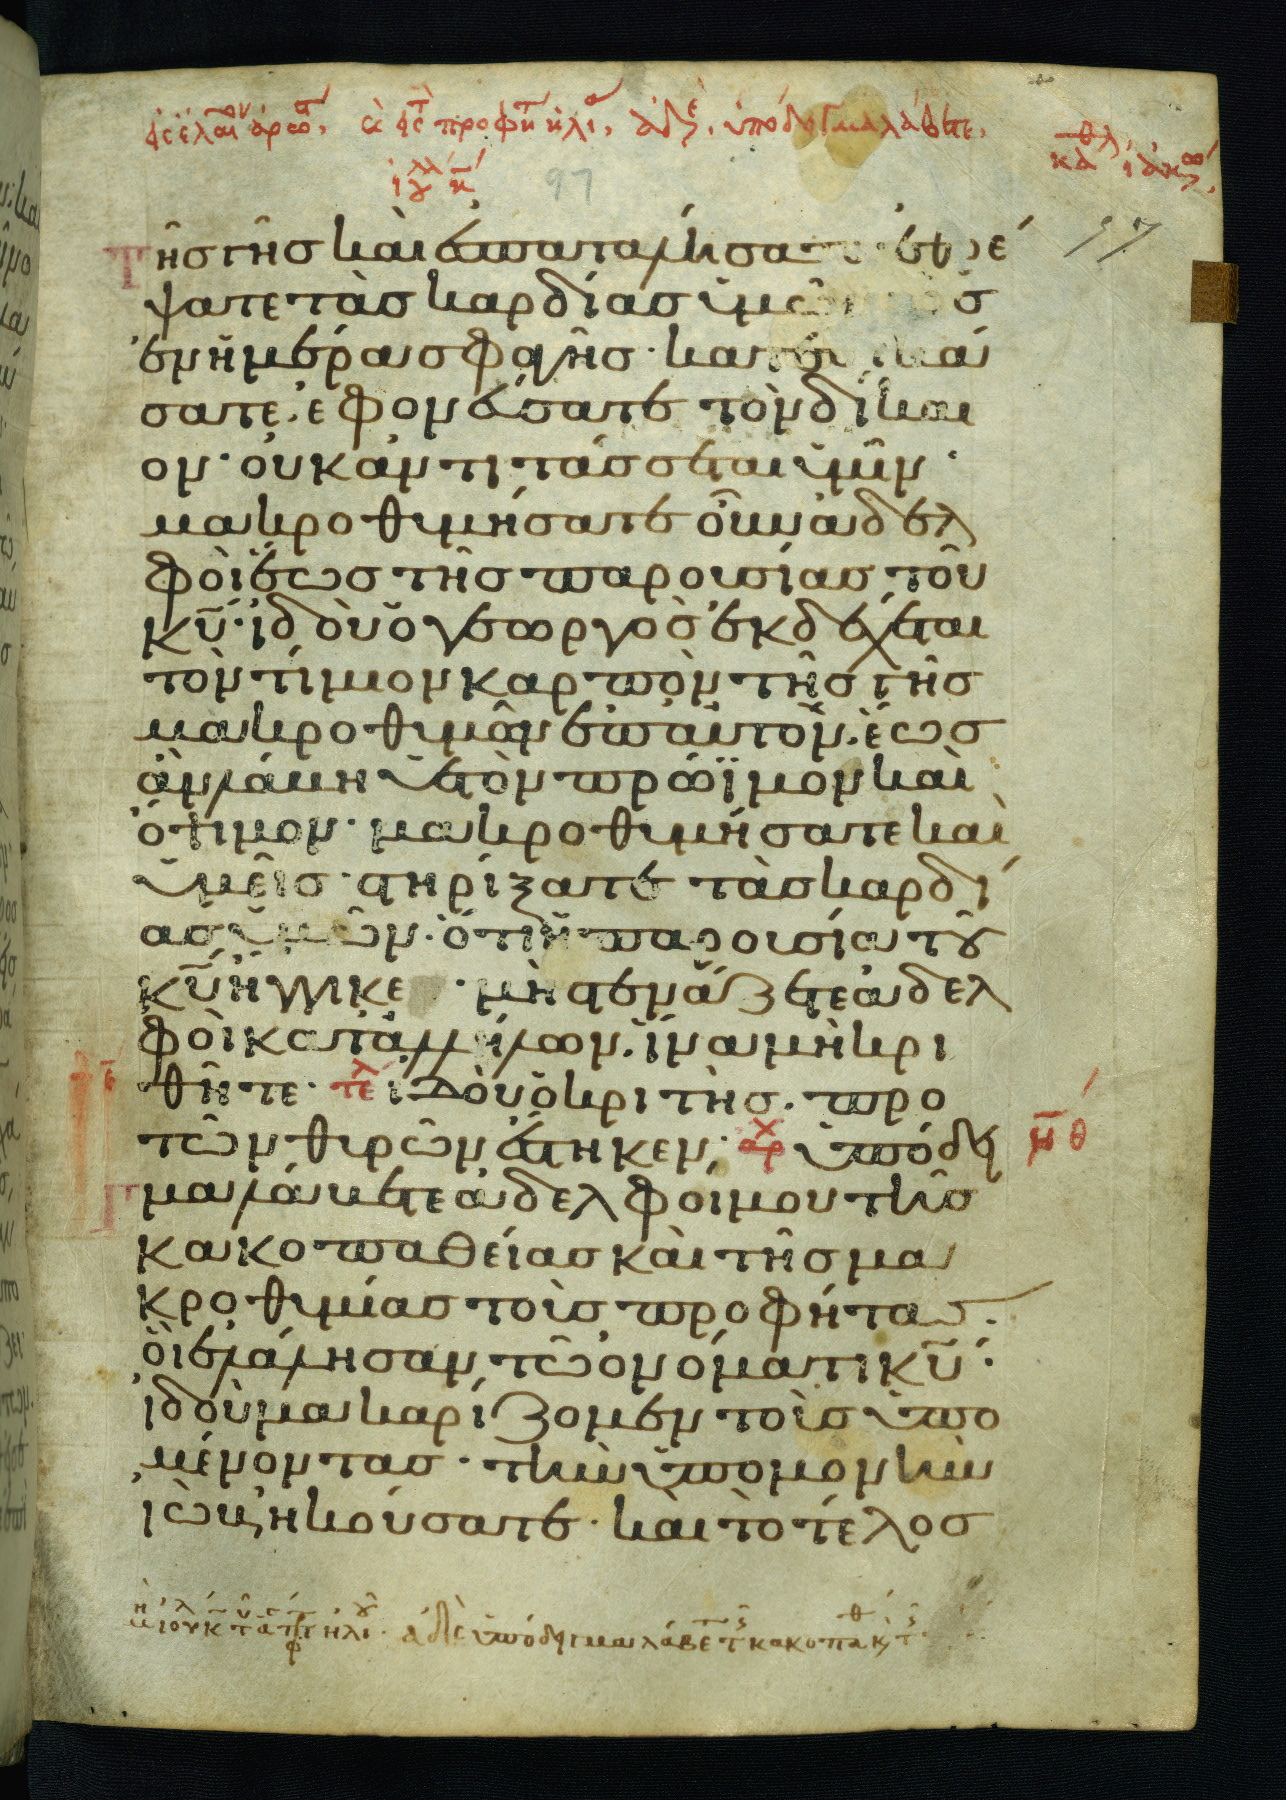 97
97
τῆς γῆς καὶ ἐσπαταλήσατε· ἐθρέ
ψατε τὰς καρδίας ὑμῶν ὡς
ἐν ἡμέρα σφαγῆς· κατεδικά
σατε. ἐφονεύσατε τὸν δίκαι
ον· οὐκ ἀντιτάσσεται ὑμῖν·
μακροθυμήσατε οὖν ἀδελ
φοὶ ἕως τῆς παρουσίας τοῦ
κυ· ἰδοὺ ὁ γεωργὸς ἐκδέχεται
τὸν τίμιον καρπὸν τῆς γῆς
μακροθυμῶν ἐπ' αὐτὸν. ἕως
ἂν λάβη ὑετὸν πρώϊμον καὶ
ὄψιμον· μακροθυμήσατε καὶ
ὑμεῖς· στηρίξατε τὰς καρδί
ας ὑμῶν. ὅτι ἡ παρουσία τοῦ
κυ ἤγγικε· μὴ στενάζετε ἀδελ
φοὶ κατ' ἀλλήλων. ἵνα μὴ κρι
θῆτε· τελ ἰδοὺ ὁ κριτὴς. προ
τῶν θυρῶν ἕστηκεν· αρχ ὑπόδει
γμα λάβετε ἀδελφοί μου τῆς
κακοπαθείας καὶ τῆς μα
κροθυμίας τοὺς προφήτας.
οἳ ἐλάλησαν τῶ ὀνόματι κυ·
ἰδοὺ μακαρίζομεν τοὺς ὑπο
μένοντας· τὴν ὑπομονὴν
ἰὼβ ἠκούσατε· καὶ τὸ τέλος